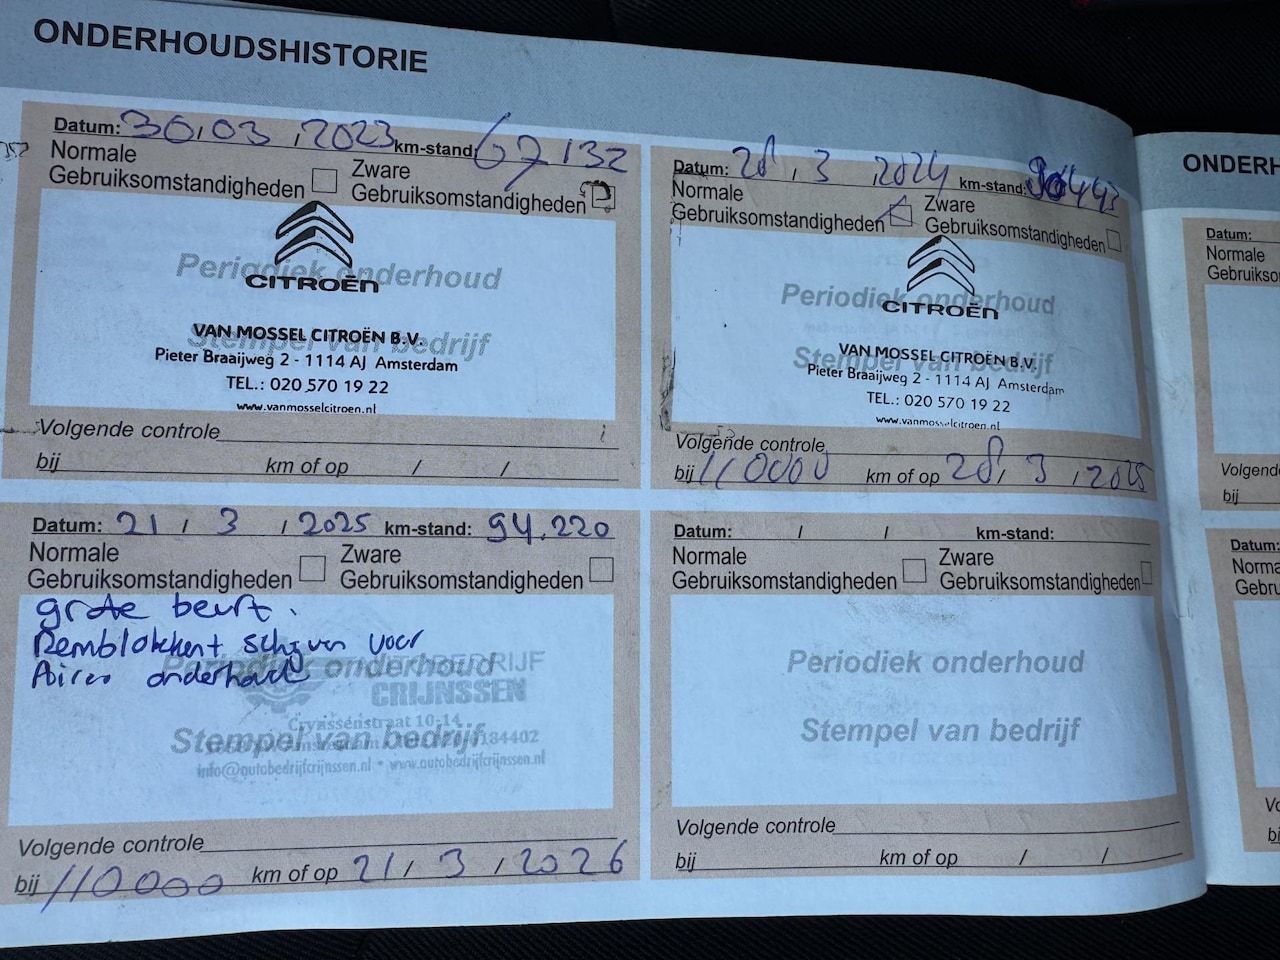 ONDERHOUDSHISTORIE
Datum: 30 / 03 / 2023 km-stand: 67132
Normale Gebruiksomstandigheden
Zware Gebruiksomstandigheden
Periodiek onderhoud
CITROËN
Stempel van bedrijf
VAN MOSSEL CITROËN B.V.
Pieter Braaijweg 2 - 1114 AJ Amsterdam
TEL.: 020 570 19 22
www.vanmosselcitroen.nl
Volgende controle
bij km of op / /
Datum: 28 / 3 / 2024 km-stand:
Normale Gebruiksomstandigheden
Zware Gebruiksomstandigheden
Periodiek onderhoud
CITROËN
Stempel van bedrijf
VAN MOSSEL CITROËN B.V.
Pieter Braaijweg 2 - 1114 AJ Amsterdam
TEL.: 020 570 19 22
www.vanmosselcitroen.nl
Volgende controle
bij 110000 km of op 28 / 3 / 2025
Datum: 21 / 3 / 2025 km-stand: 94.220
Normale Gebruiksomstandigheden
Zware Gebruiksomstandigheden
grote beurt.
Remblokken+ schijven voor
Airco onderhoud
Periodiek onderhoud
CRIJNSSEN
Crynssenstraat 10-14
Stempel van bedrijf
info@autobedrijfcrijnssen.nl • www.autobedrijfcrijnssen.nl
Volgende controle
bij 110000 km of op 21 / 3 / 2026
Datum: / / km-stand:
Normale Gebruiksomstandigheden
Zware Gebruiksomstandigheden
Periodiek onderhoud
Stempel van bedrijf
Volgende controle
bij km of op / /
ONDERH
Datum:
Normale
Gebruikso
Volgend
bij
Datum:
Norma
Gebru
Vo
bi